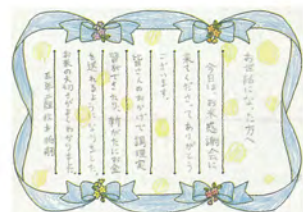 お世話になった方へ
今日は、お米感謝会に
来てくださってありがとう
ございます。
皆さんのおかげで調理実
習ができたり、新がたにお金
を送れるようになりました。
お米の大切さがよくわかりました。
五年二組